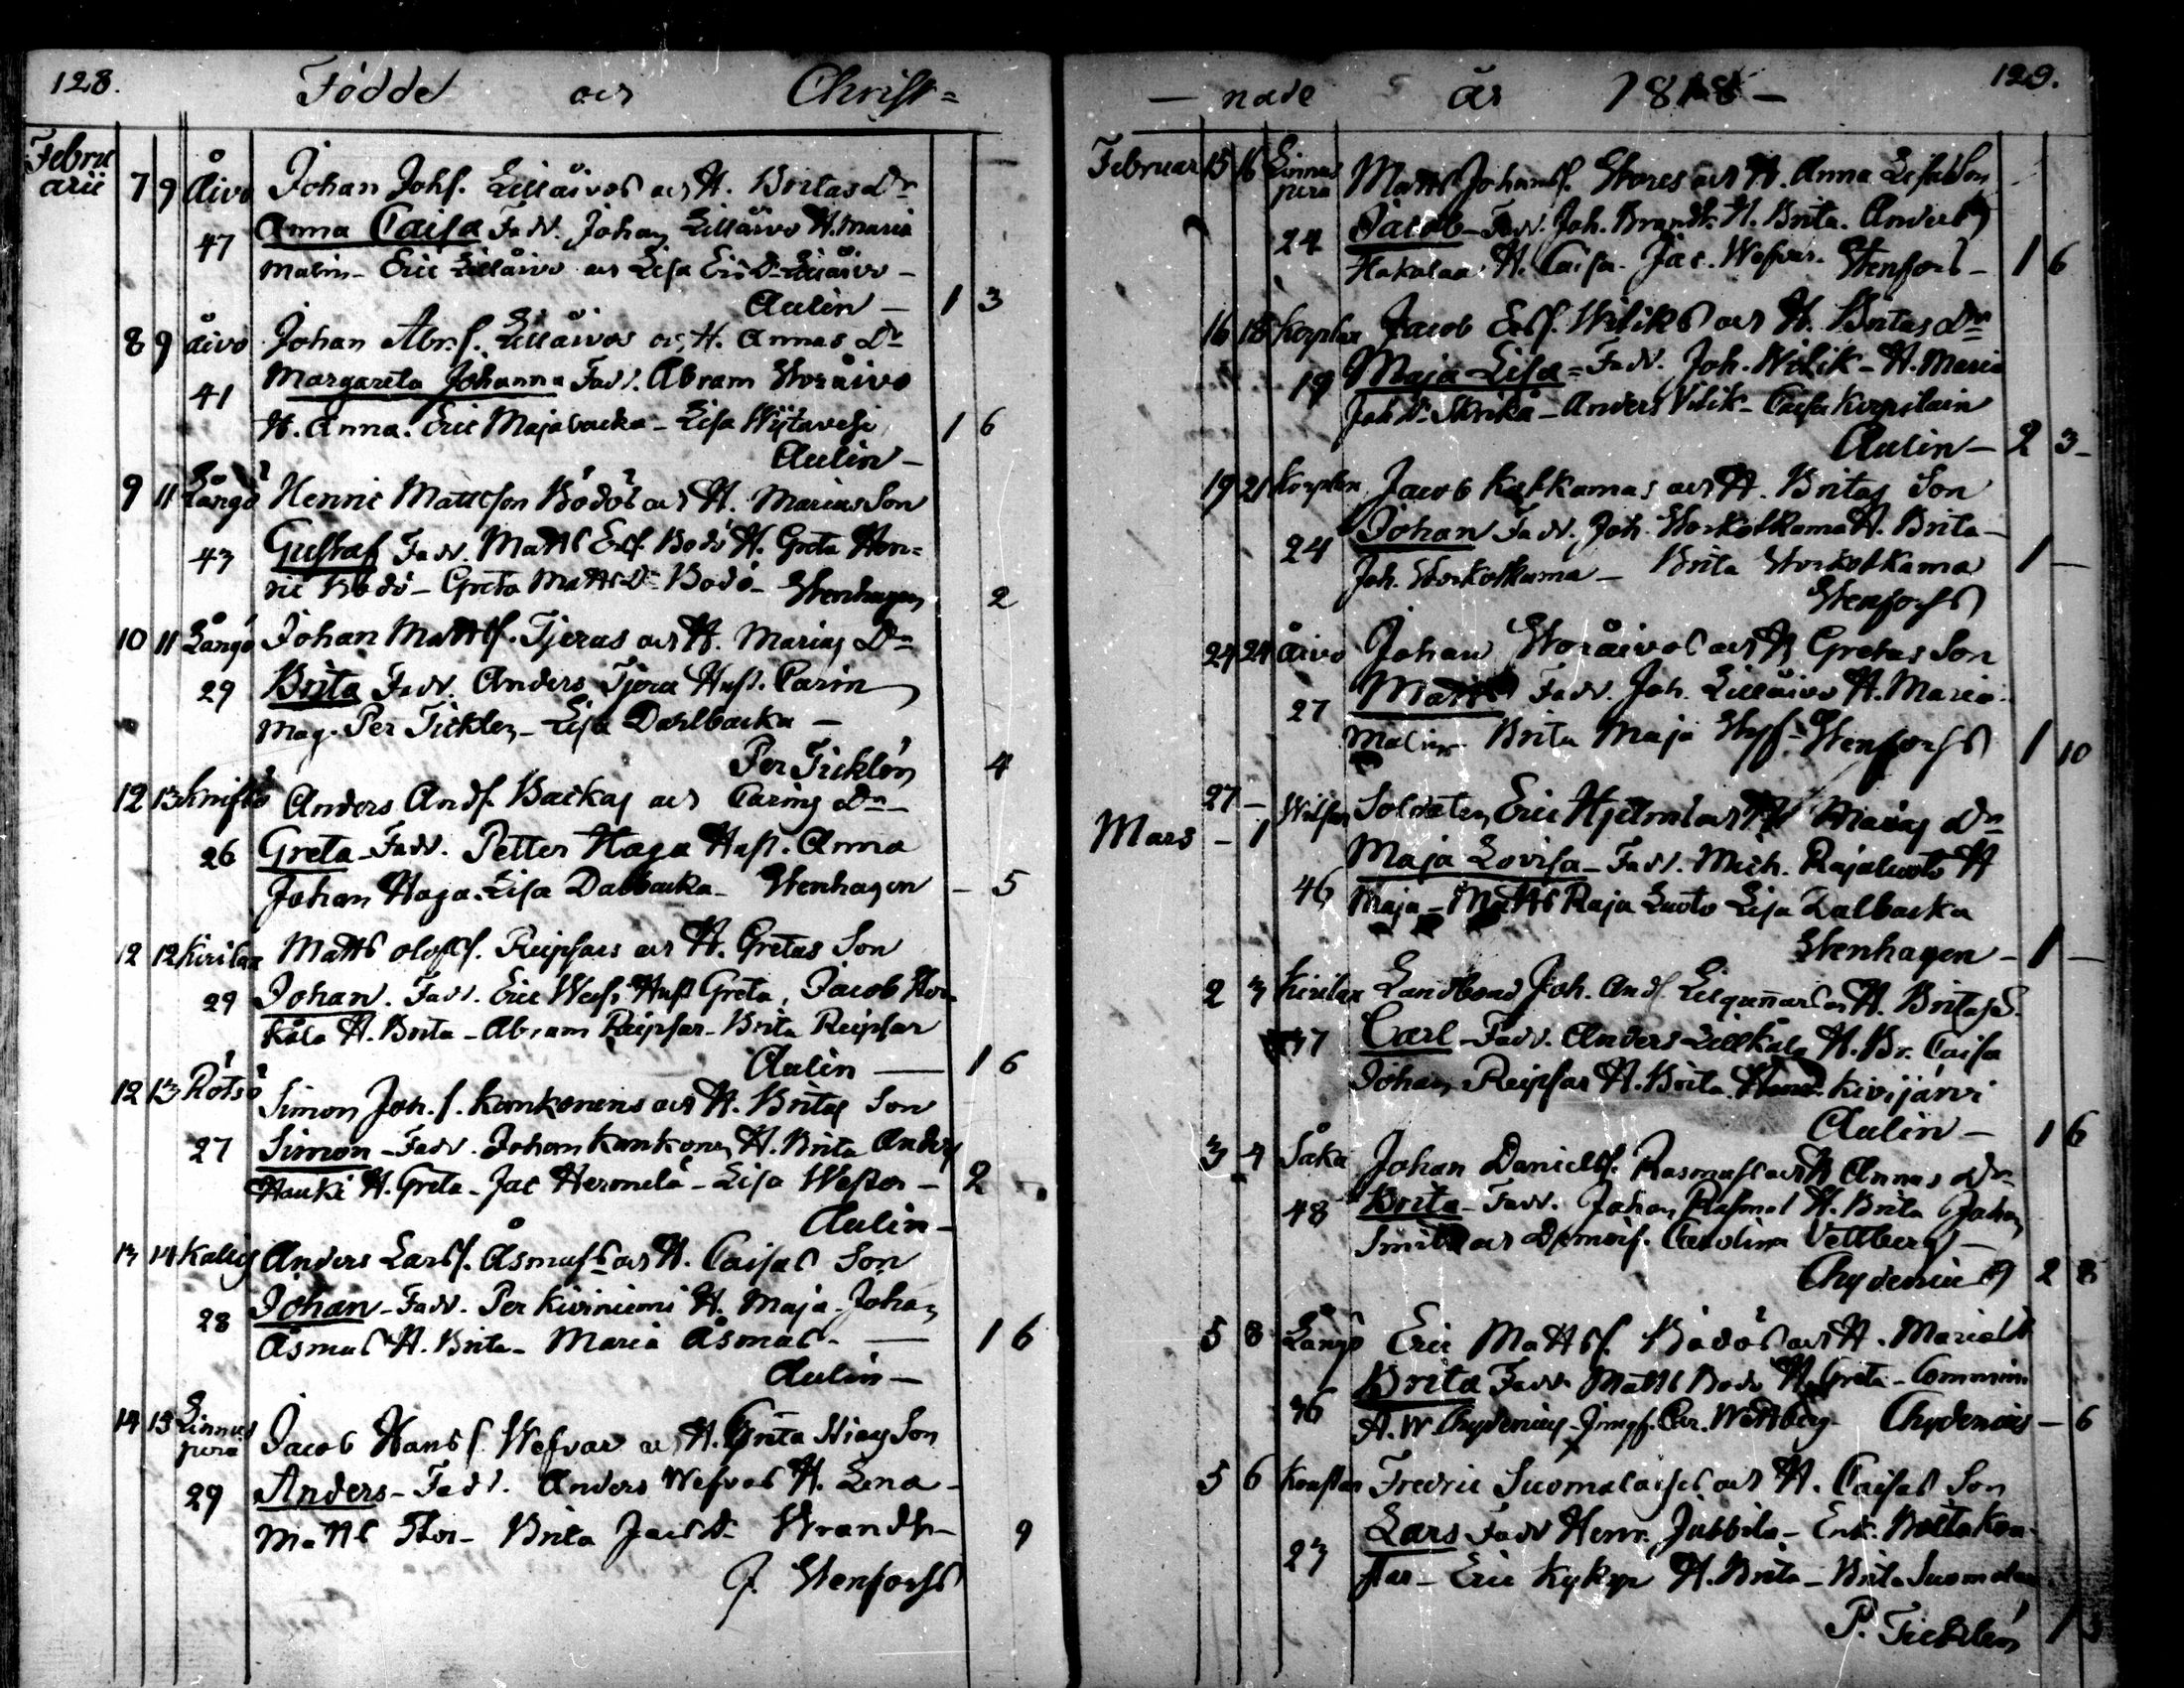 128.
Födde och Christ=
Febru
arii 7 9 Åivo Johan Johs. Lillåivos och H. Britas Dr
47 Anna Caisa Fadd. Johan Lillåivo H. Maria
Malin - Eric Lillåivo och Lisa Eric Dr Lillåivo -
Aulin - 1 3
8 9 åivo Johan Abr. s. Lillåivos och H. Annas Dr
41 Margareta Johanna Fadd. Abram Storåivo
H. Anna. Eric Majabacka - Lisa Wijtavesi 1 6
Aulin -
9 11 Långö Henric Mattsson Bodös och H. Marias Son
43 Gustaf Fadd. Matts Ers. Bodö H. Greta Hen=
ric Bodö - Greta Matts Dr Bodö - Stenhagen 2
10 11 Långö Johan Mattss. Tjeras och H. Marias Dr
29 Brita Fadd. Anders Tjera Hust. Carin
Mag. Per Ticklen - Lisa Dahlbacka -
Per Ticklén 4
12 13 Knifsö Anders Ands. Backas och Carins Dr
26 Greta - Fadd. Petter Haga Hust. Anna
Johan Haga. Lisa Dalbacka - Stenhagen - 5
12 12 Kirilax Matts Olofss. Reipsars och H. Gretas Son
29 Johan. Fadd. Eric Hust Greta, Jacob Stor=
kåla H. Brita - Abram Reipsar - Brita Reipsar
Aulin - 1 6
12 13 Rötsö Simon Joh. s. Kankonens och H. Britas Son
27 Simon - Fadd. Johan Kankonen H. Brita Anders
Hauki H. Greta - Jac Hermelä - Lisa Wester - 2
Aulin -
13 14 Kallis Anders Larss. Åsmuss och H. Caisas Son
28 Johan - Fadd. Per Kiviniemi H. Maja - Johan
Åsmus H. Brita - Maria Åsmus - 1 6
Aulin -
14 15 Linnus
pera Jacob Hanss. Wefvar och H. Son
29 Anders - Fadd. Anders Wefvas H. Lena -
Matts Stor - Brita Jacs Dr - 9
J. Stenfors
129.
- nade år 1818 -
Februar 15 16 Linnus
pera Matts Johanss. Stores och H. Anna Lisas Son
24 Jacob - Fadd. Joh. Brandt. H. Brita. Anders
Hakalax H. Caisa - Jac. Wefvar. Stenfors - 1 6
16 18 Korplax Jacob Ers. Wiliks och H. Britas Dr
19 Maja Lisa = Fadd. Joh. Wilik - H. Maria
Jac Dr - Anders Vilik - Caisa Korpilain
Aulin - 2 3 -
19 21 Korplax Jacob Kolkamas och H. Britas Son
24 Johan Fadd. Joh. Storkolkama H. Brita -
Joh. Storkolkama - Brita Storkolkama 1 -
Stenfors
24 24 Åivo Johan Storåivos och H Gretas Son
27 Matts Fadd. Joh. Lillåivo H. Maria.
Malin - Brita Maja Stenfors 1 10
27 - Soldaten Eric Hjelms och H Marias Dr
Mars - 1
46 Maja Lovisa - Fadd. Mich. Rajaluoto H
Maja - Matts Raja Luoto Lisa Dalbacka
Stenhagen - 1 -
2 3 Kirilax Landbond Joh. Ands. och H. Britas S.
37 Carl - Fadd. Anders Lillkåla H. Br. Caisa
Johan Reipsar H. Brita. Kivijärvi
Aulin - 1 6
3 4 Såka Johan Daniels. Rasmuss och H Annas Dr
48 Brita - Fadd. Johan Rasmus H. Brita Johan
Smits och Demois. Carolina Vettberg -
Chydenius 2 8
5 8 Långö Eric Mattss. Bodös och H. Marias Dr
36 Brita Fadd. Matts Bodö H. Greta - Commin.
A. W. Chydenius - Jungf. Car. Wettberg - Chydenius - 6
5 6 Fredric Suomalaises och H. Caisas Son
23 Lars Fadd Henr. Jubbila - Enk.
- Eric Kykyr H. Brita - Brita Suomala
P. Ticklén 1